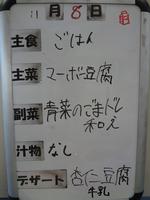 11月8日
主食 ごはん
主菜 マーボ豆腐
副菜 青菜のごまドレ
和え
汁物 なし
デザート 杏仁豆腐
牛乳